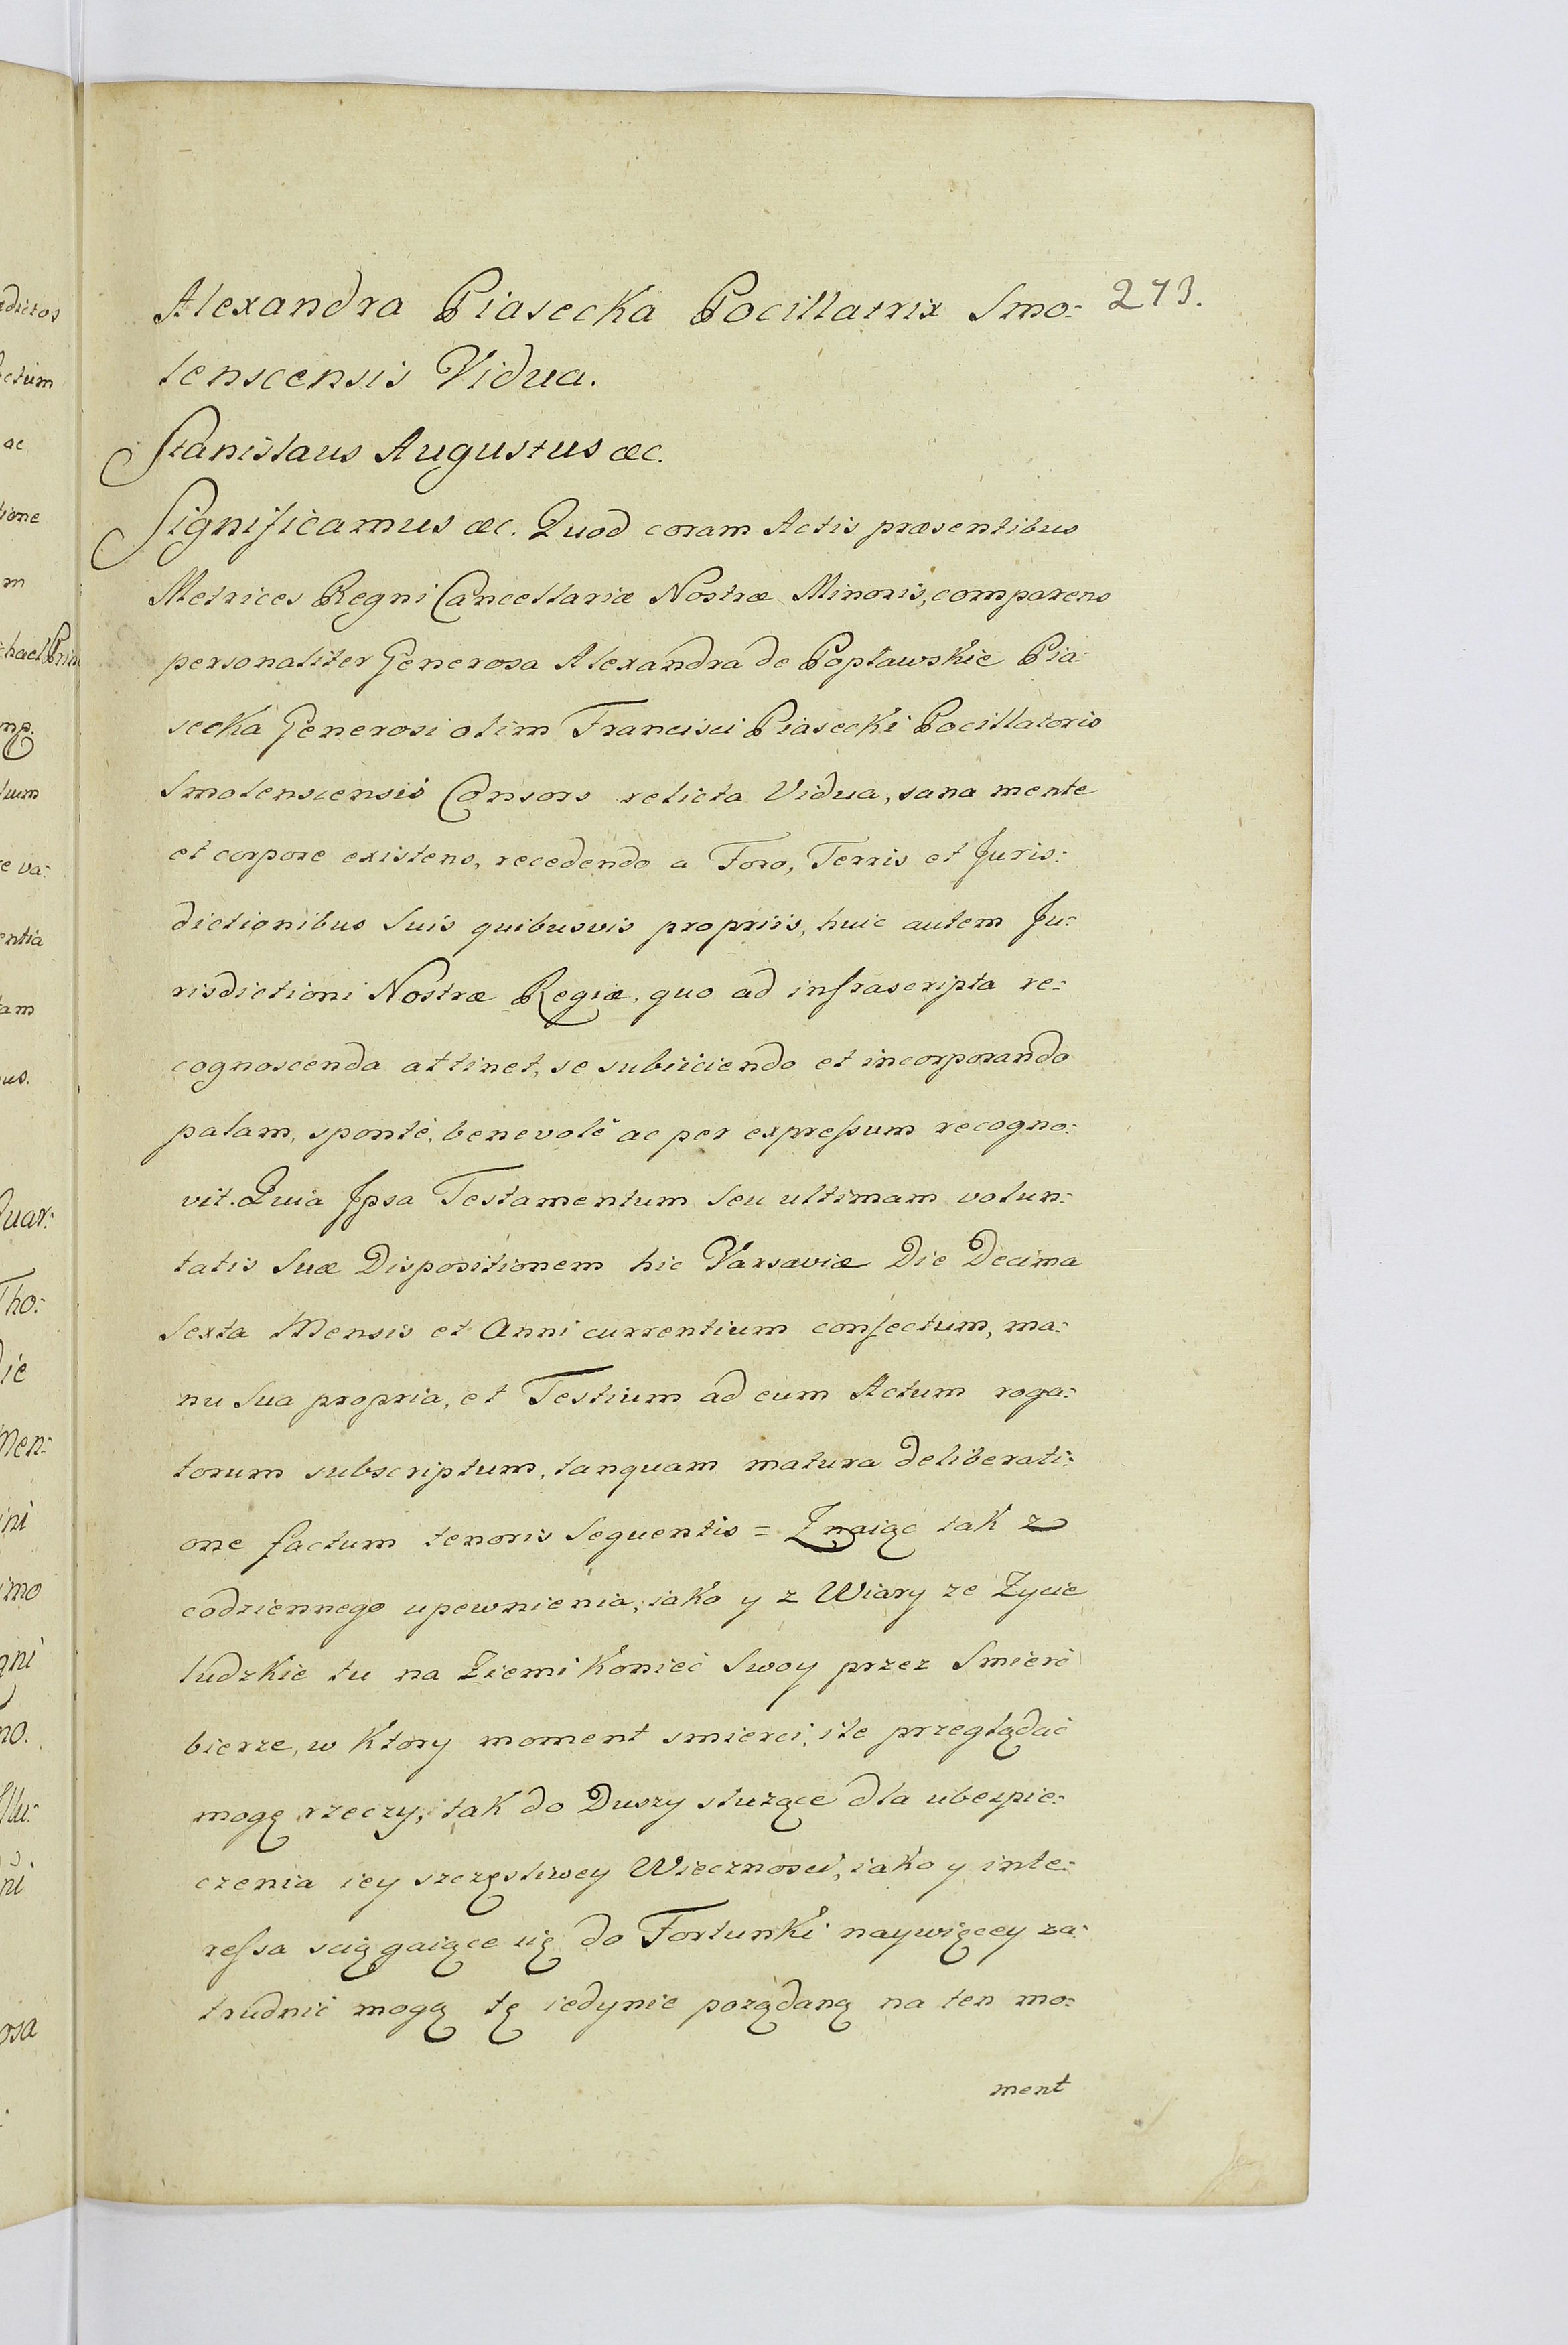 Alexandra Piasecka Pocillatrix Smo: 273.
lenscensis Vidua.
Stanislaus Augustus &c.
Significamus &c. Quod coram Actis præsentibus
Metrices Regni Cancellariæ Nostræ Minoris, comparens
personaliter Generosa Alexandra de Popławskie Pia:
secka Generosi olim Francisci Piasecki Pocillatoris
Smolenscensis Consors relicta Vidua, sana mente
et corpore existens, recedendo a Foro, Terris et Juris:
dictionibus Suis quibusvis propriis, huic autem Ju:
risdictioni Nostræ Regiæ, quo ad infrascripta re:
cognoscenda attinet, se subiiciendo et incorporando
palam, sponté, benevolé ac per expressum recogno:
vit. Quia Jpsa Testamentum Seu ultimam volun:
tatis Suæ Dispositionem hic Varsaviæ Die Decima
Sexta Mensis et Anni currentium confectum, ma:
nu Sua propria, et Testium ad eum Actum roga:
torum subscriptum, tanquam matura deliberati:
one factum tenoris Sequentis = Znaiąc tak z
codziennego upewnienia, iako y z Wiary ze Zycie
ludzkie tu na Ziemi koniec Swoy przez Smierć
bierze, w ktory moment smierci, ile przeglądać
mogę rzeczy, tak do Duszy służące dla ubezpie:
czenia iey szczęsliwey Wiecznosci, iako y inte:
ressa sciągaiące się do Fortunki naywięcey za:
trudnić mogą tę iedynie pożądaną na ten mo:
ment